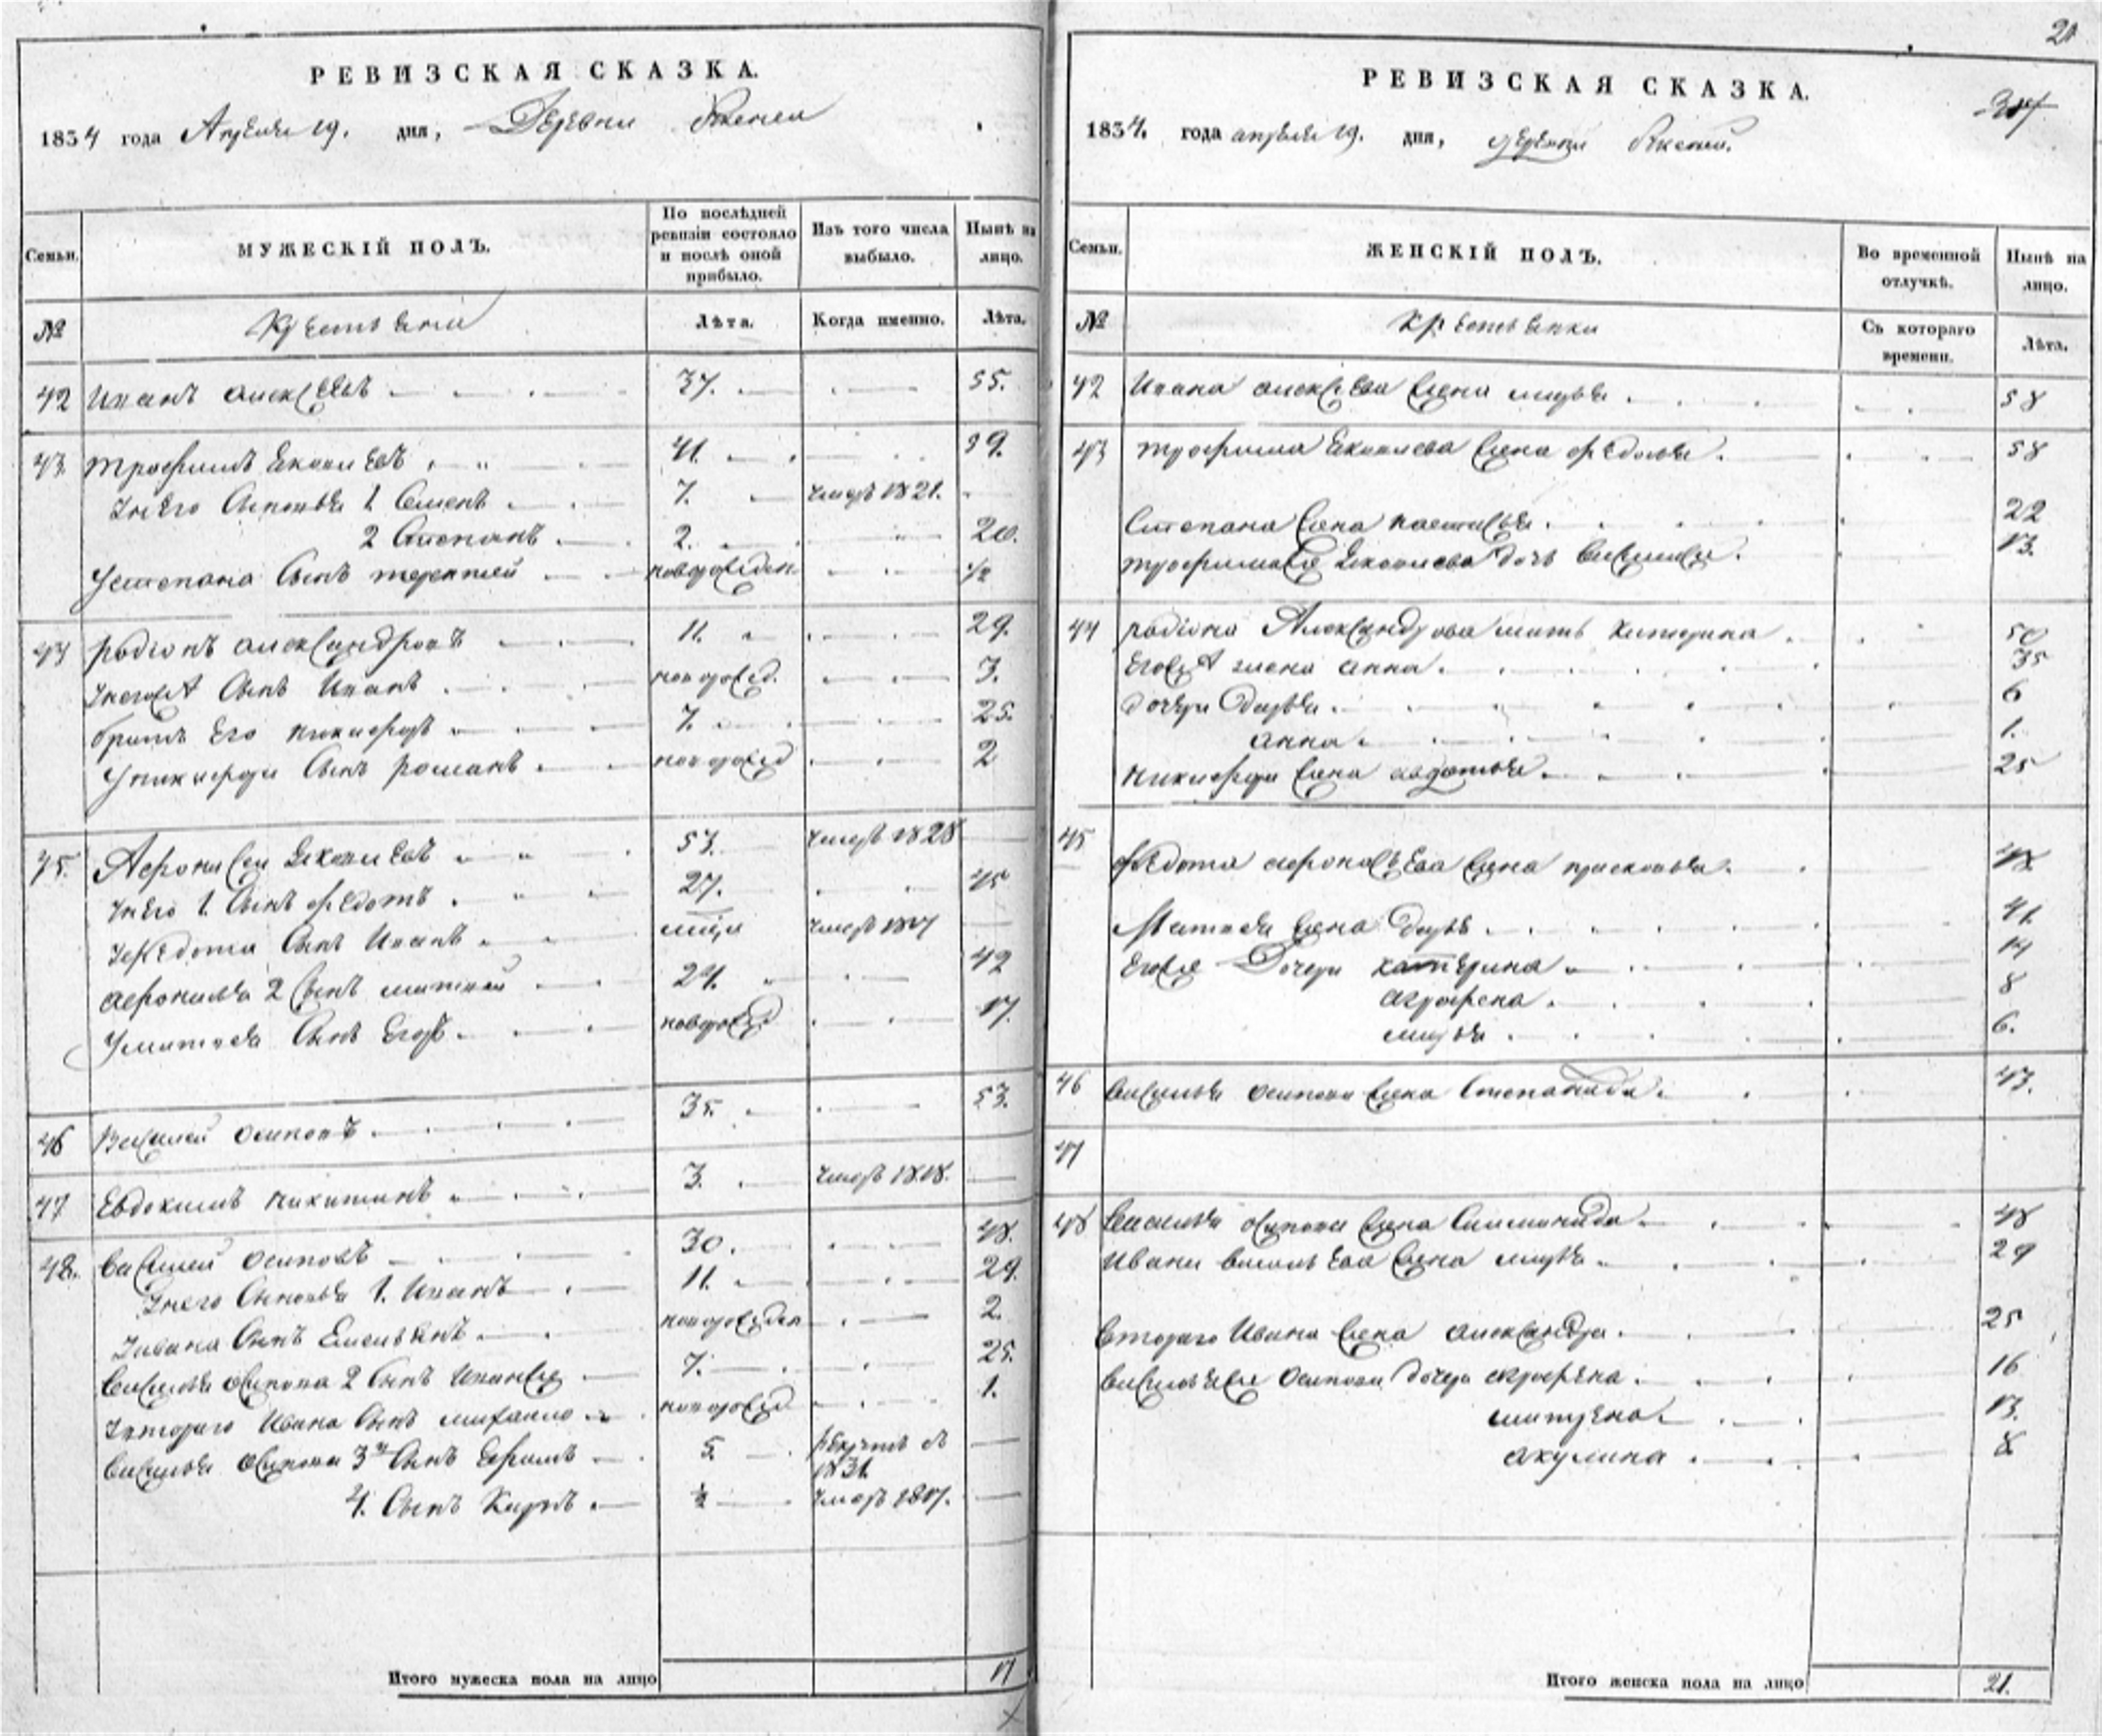 РЕВИЗСКАЯ СКАЗКА.
1834 года Апреля 19. дня, Деревни
Семьи. МУЖЕСКІЙ ПОЛЪ. По послѣдней ревизіи состояло и послѣ оной прибыло. Изъ того числа выбыло. Нынѣ на лицо.
№ Крестьяни Лѣта. Когда именно. Лѣта.
42 Иванъ алексѣевъ 37. 55.
43 трофимъ Яковлевъ 41. 59.
Унего Сыновья 1 Семенъ 7. умеръ 1821.
2 Степанъ 2. 20.
Устепана Сынъ терентей новорожден. 1/2
44 родіонъ александровъ 11. 29.
Унегожъ Сынъ Иванъ новорожд. 3.
братъ Его никифоръ 7. 25.
Уникифора Сынъ романъ новорожд 2
45. Афонасеи Яковлевъ 57. умеръ 1828
Унего 1. Сынъ федотъ 27. 45
Уфедота Сынъ Иванъ умеръ
афонасья 2 Сынъ матвей 24. 42
Уматвея Сынъ Егоръ новорожд 17.
46 Василей осиповъ 35. 53.
47 Евдокимъ никитинъ 3. умеръ 1818.
48. Василей осиповъ 30. 48.
Унего Сыновья 1. Иванъ 11. 29.
Уивана Сынъ Емельянъ новорожден 2.
Василья осипова 2 Сынъ Иванже 7. 25.
Увтораго Ивана Сынъ михаило новорожд 1.
Василья осипова 3й Сынъ Ефимъ 5. рекрутъ съ 1831.
4. Сынъ Карпъ 1/2 умеръ 1817.
Итого мужеска пола на лицо 17
20
РЕВИЗСКАЯ СКАЗКА.
1834. года апреля 19. дня, деревни
Семьи. ЖЕНСКІЙ ПОЛЪ. Во временной отлучкѣ. Нынѣ на лицо.
№ Крестьянки Съ котораго времени. Лѣта.
42 Ивана алексѣева жена марья 58
43 трофима Яковлева жена федосья 58
Степана жена настасья 22
трофимаже Яковлева дочь Василиса 13.
44 родіона Александрова мать катерина 50
Егожъ жена анна 35
дочери дарья 6
анна 1.
никифора жена авдотья 25
45 федота афонасьева жена прасковья 48
Матвея жена дарья 41
Егоже Дочери катерина 14
аграфена 8
марья 6.
46 василья осипова жена Степанида 43.
47
48 василья осипова жена 48
Ивана васильева жена марья 29
втораго Ивана жена александра 25
васильяже осипова дочери аграфена 16
матрена 13.
акулина 8
Итого женска пола на лицо 21.